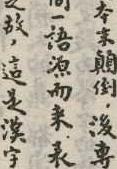 本末顛倒，後專
同一語源而来表
之故，這是漢字